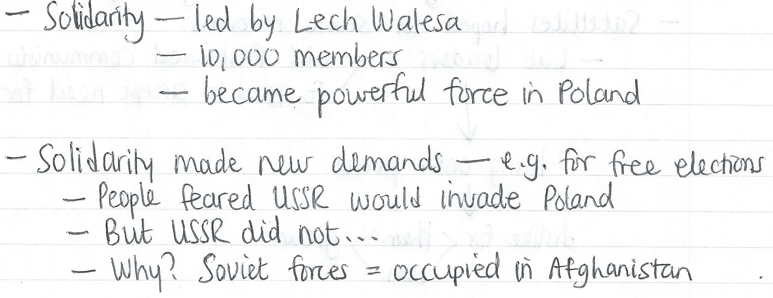 - Solidarity - led by Lech Walesa
- 10,000 members
- became powerful force in Poland
- Solidarity made new demands - e.g. for free elections
- People feared USSR would invade Poland
- But USSR did not...
- Why? Soviet forces = occupied in Afghanistan